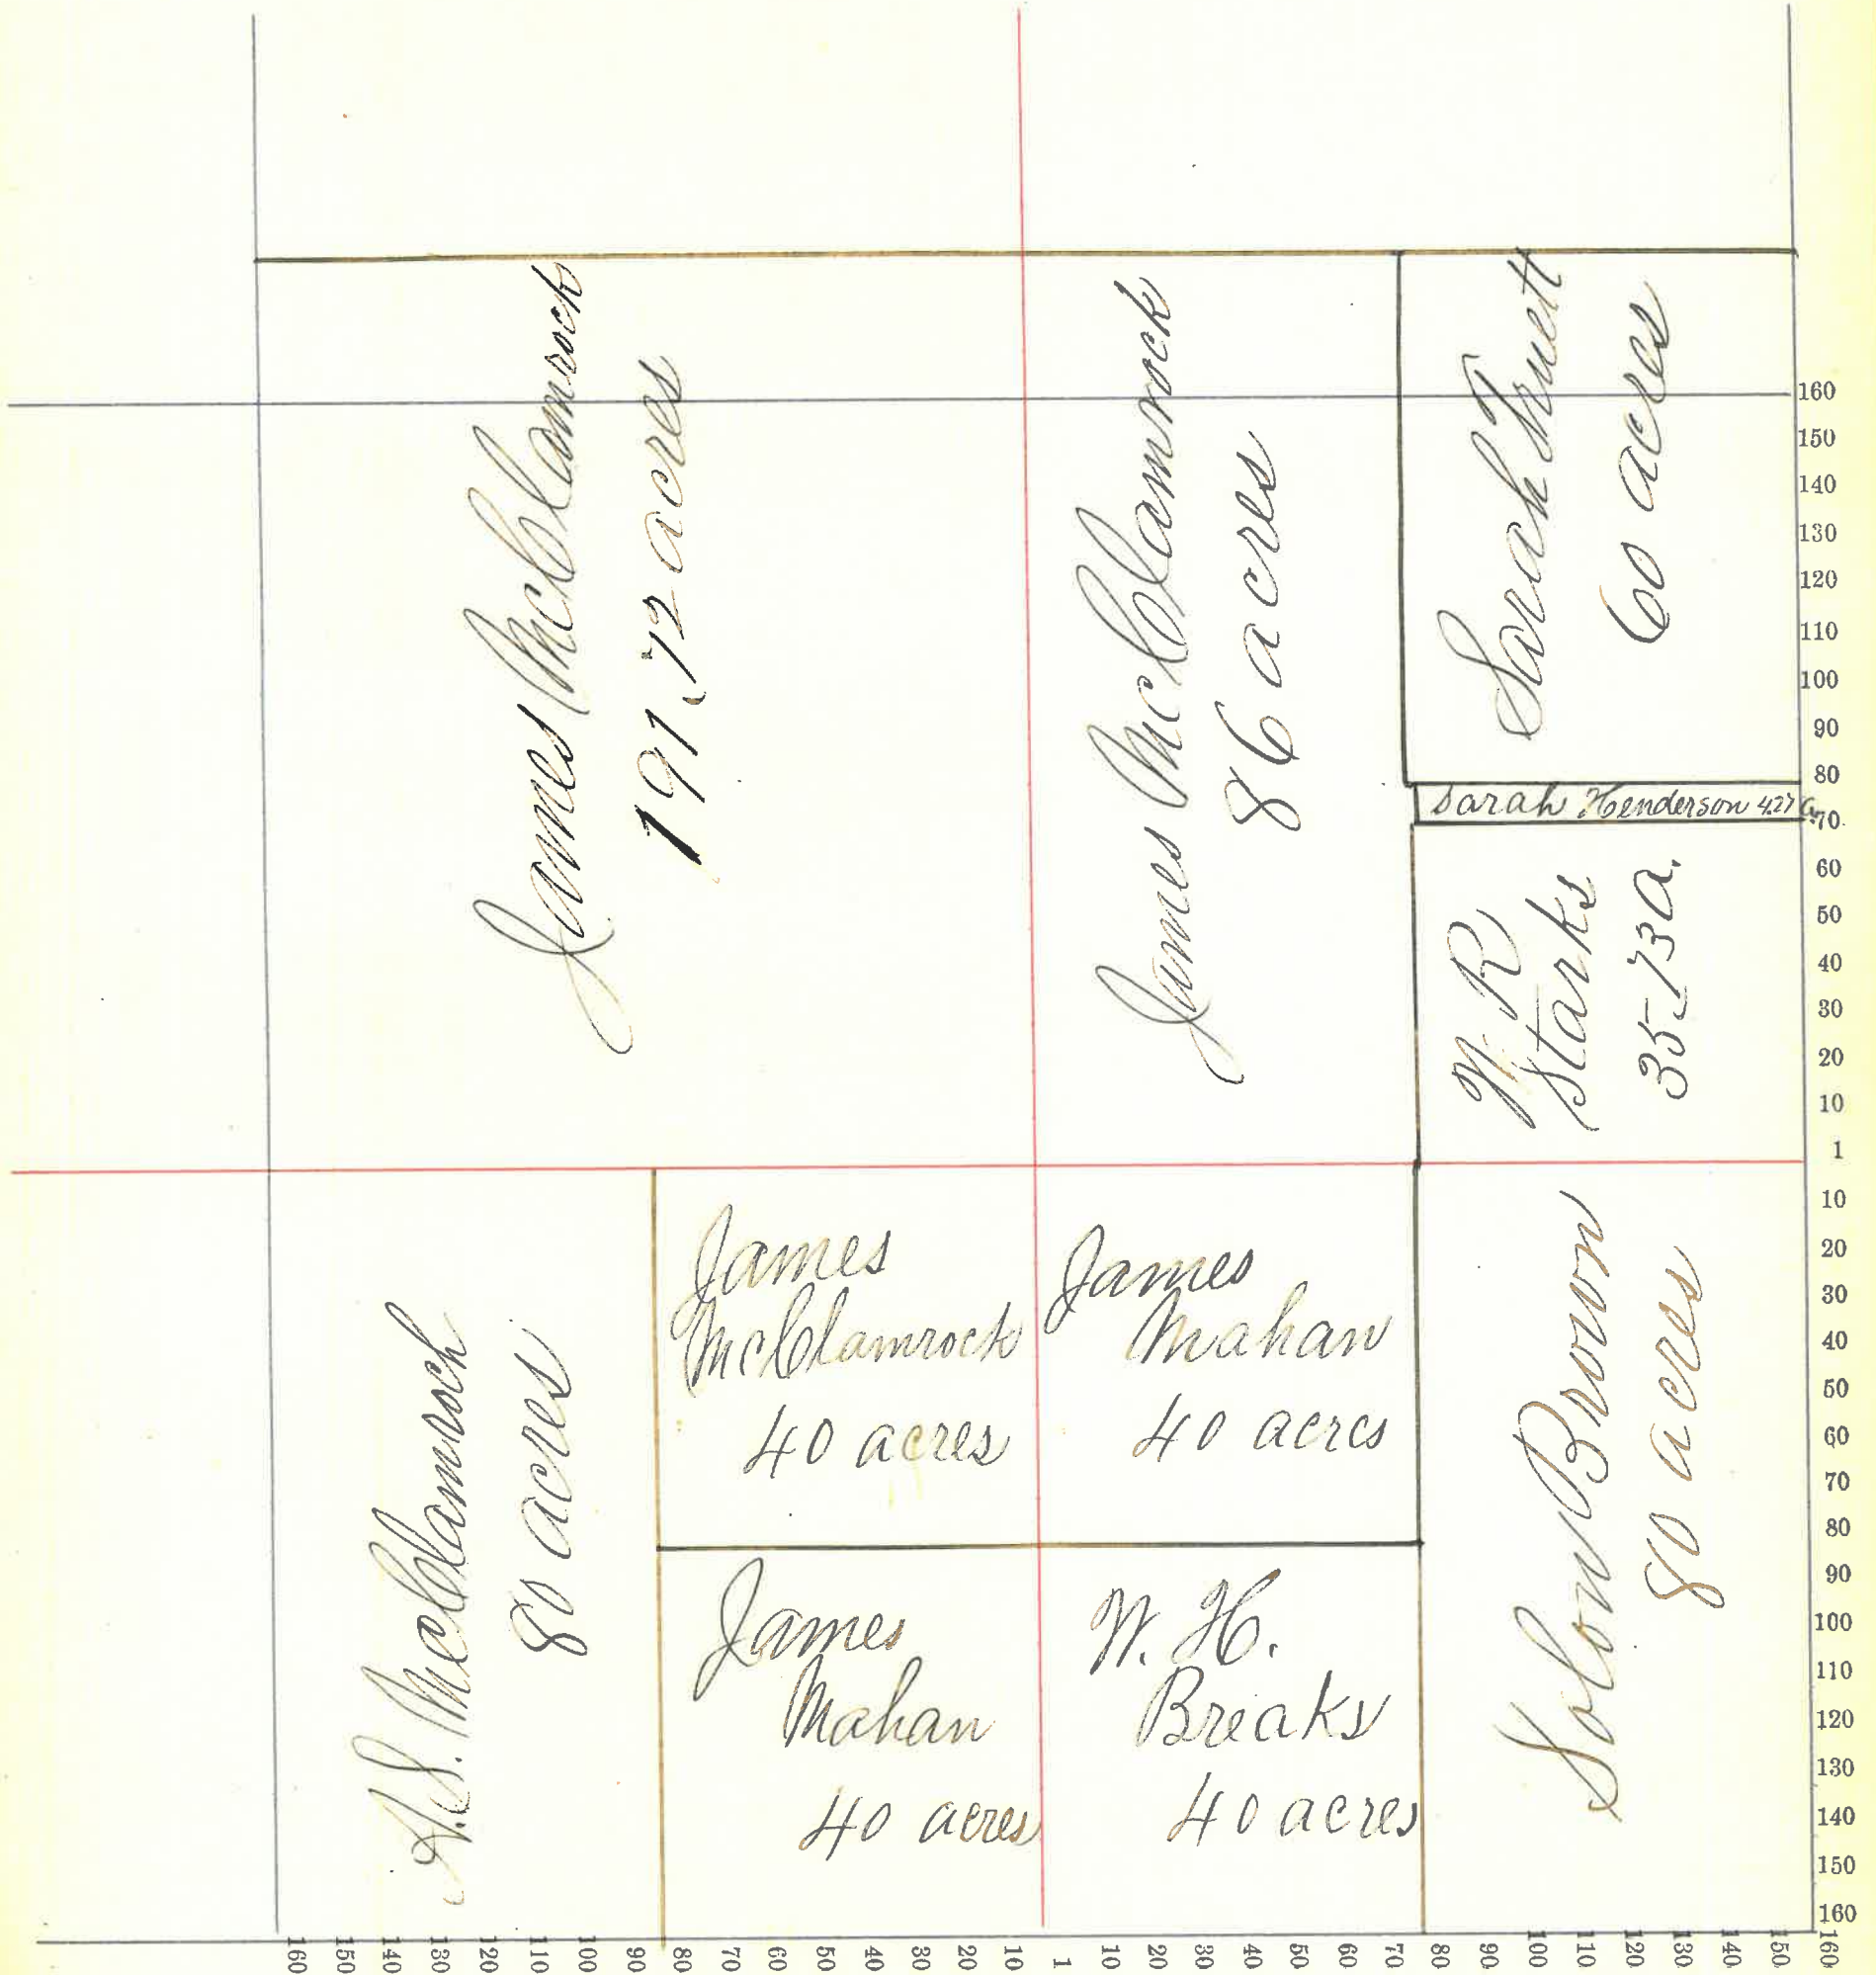 James McClamrock
191.72 acres
James McClamrock
86 acres
Sarah Truett
60 acres
Sarah Henderson 4.27 a.
W. R
Starks
35.73 a.
A.S. McClamroch
80 acres
James
McClamrock
40 acres
James
Mahan
40 acres
James
Mahan
40 acres
W. H.
Breaks
40 acres
Solon Brown
80 acres
160
150
140
130
120
110
100
90
80
70
60
50
40
30
20
10
1
10
20
30
40
50
60
70
80
90
100
110
120
130
140
150
160
160 150 140 130 120 110 100 90 80 70 60 50 40 30 20 10 1 10 20 30 40 50 60 70 80 90 100 110 120 130 140 150 160